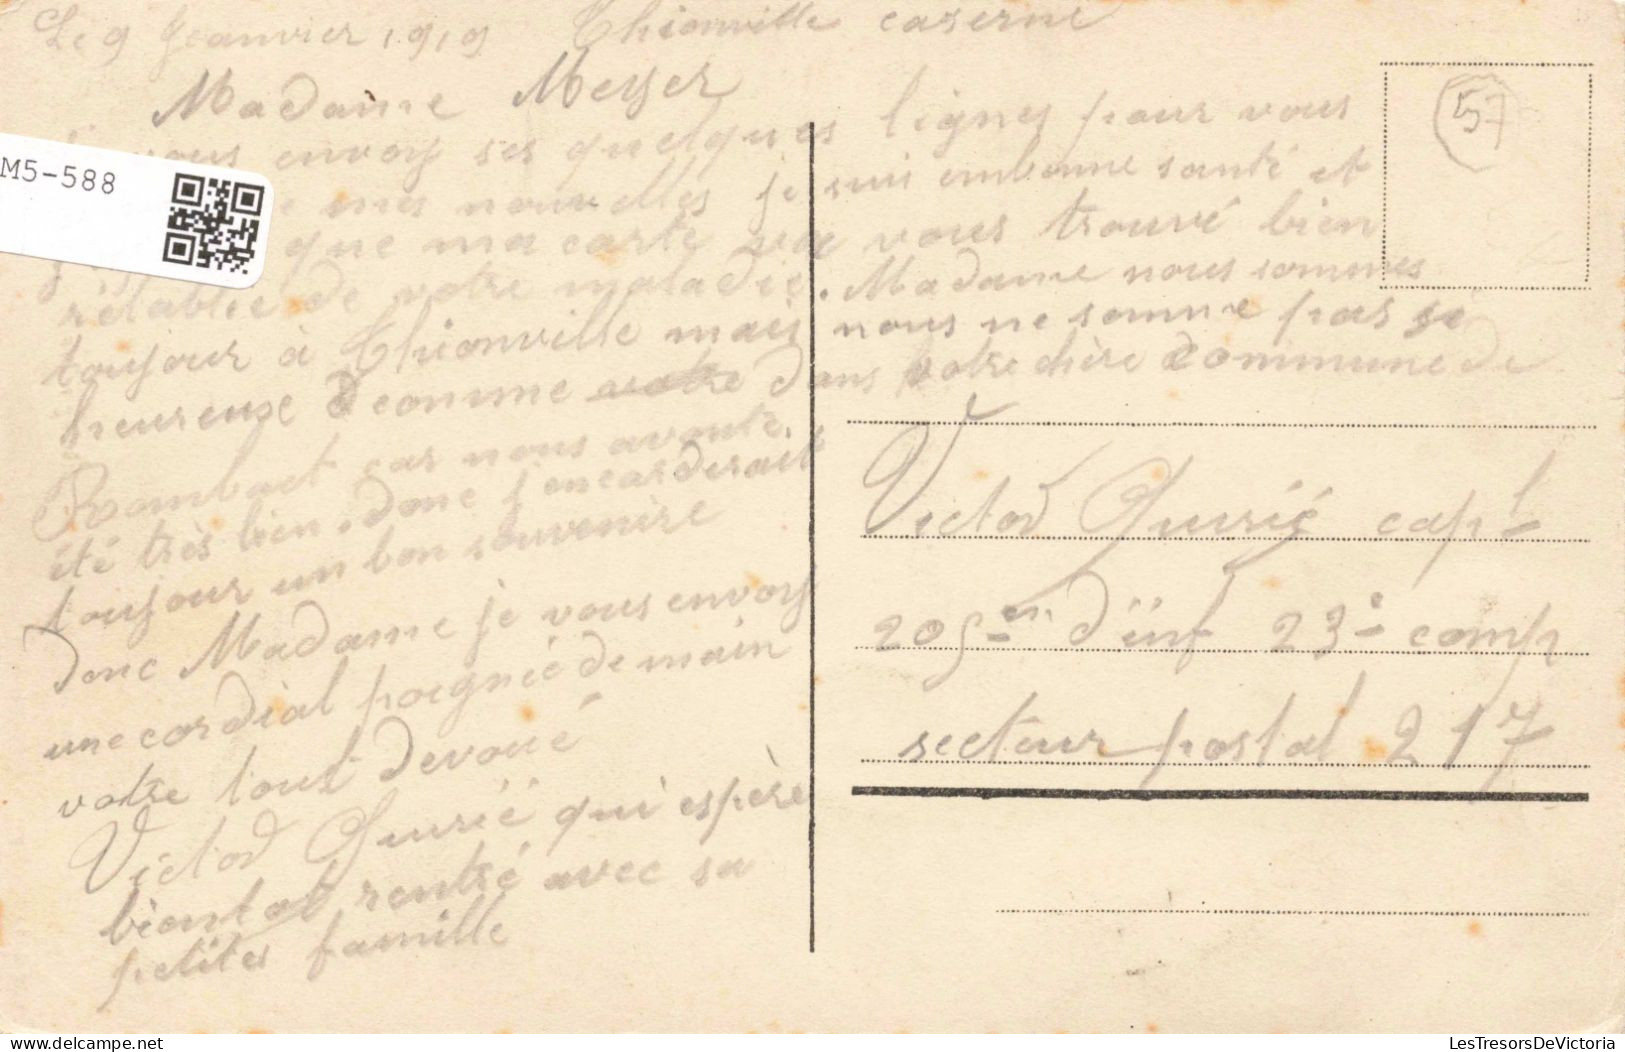 Le 9 Jeanvier 1919 Thionville caserne
Madame Meyer
vous envoy ses quelques lignes pour vous
mes nouvelles je suis enbonne santé et
que ma carte va vous trouvé bien
rétablie de votre maladie. Madame nous sommes
toujour à Thionville mais nous ne somme pas si
heureuse comme votre dans votre chère commune de
Rombact car nous avonté
été très bien. donc j'en carderait
toujour un bon souvenire
donc Madame je vous envoy
une cordial poignée de main
votre tout devoué
Victod Gurié qui espère
bientot rentré avec sa
petites famille
57
Victod Gurié capl
205em d'inf 23e comp
secteur postal 217
M5-588
LesTresorsDeVictoria
delcampe.net